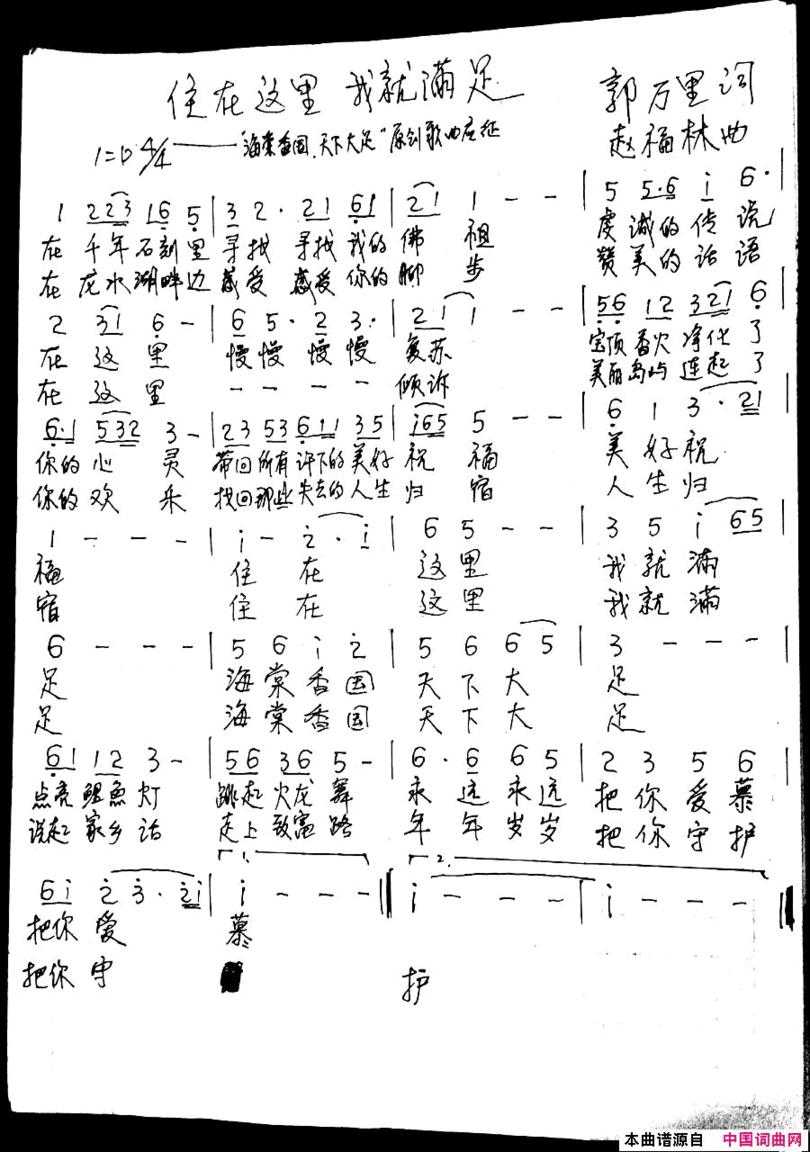 住在这里 我就满足
郭万里词
1=D 4/4 —— "海棠香国、天下大足"原创歌曲应征
赵福林曲
1 2 2 3 1 6 5 | 3 2 · 2 1 6 1 | 2 1 1 - - | 5 5·6 i 6 ·
在 千年 石刻 里 寻找 寻找 我的 佛 祖 虔诚的传说
在 龙水 湖畔 边 感受 感受 你的 脚 步 赞美的话语
2 3 1 6 - | 6 5 · 2 3 · | 2 1 1 - - | 5 6 1 2 3 2 1 6
在 这 里 慢慢 慢慢 复苏 宝顶 香火 净化 了
在 这 里 - - - - 倾诉 美丽 岛屿 连起 了
6·1 5 3 2 3 - | 2 3 5 3 6 1 1 3 5 | i 6 5 5 - - | 6 1 3 · 2 1
你的 心 灵 带回所有许下的美好 祝 福 美 好 祝
你的 欢 乐 找回那些失去的人生 归 宿 人 生 归
1 - - - | i - 2 · i | 6 5 - - | 3 5 i 6 5
福 住 在 这里 我 就 满
宿 住 在 这里 我 就 满
6 - - - | 5 6 i 2 | 5 6 6 5 | 3 - - - |
足 海棠香国 天下大 足
足 海棠香国 天下大 足
6 1 1 2 3 - | 5 6 3 6 5 - | 6 · 6 6 5 | 2 3 5 6
点亮 鲤鱼 灯 跳起 火龙 舞 永 远 永远 把你爱慕
说起 家乡 话 走上 致富 路 年 年 岁岁 把你守护
1. 2.
6 i 2 3 · 2 i | i - - - | i - - - | i - - -
把你 爱 慕
把你 守 护
本曲谱源自 中国词曲网